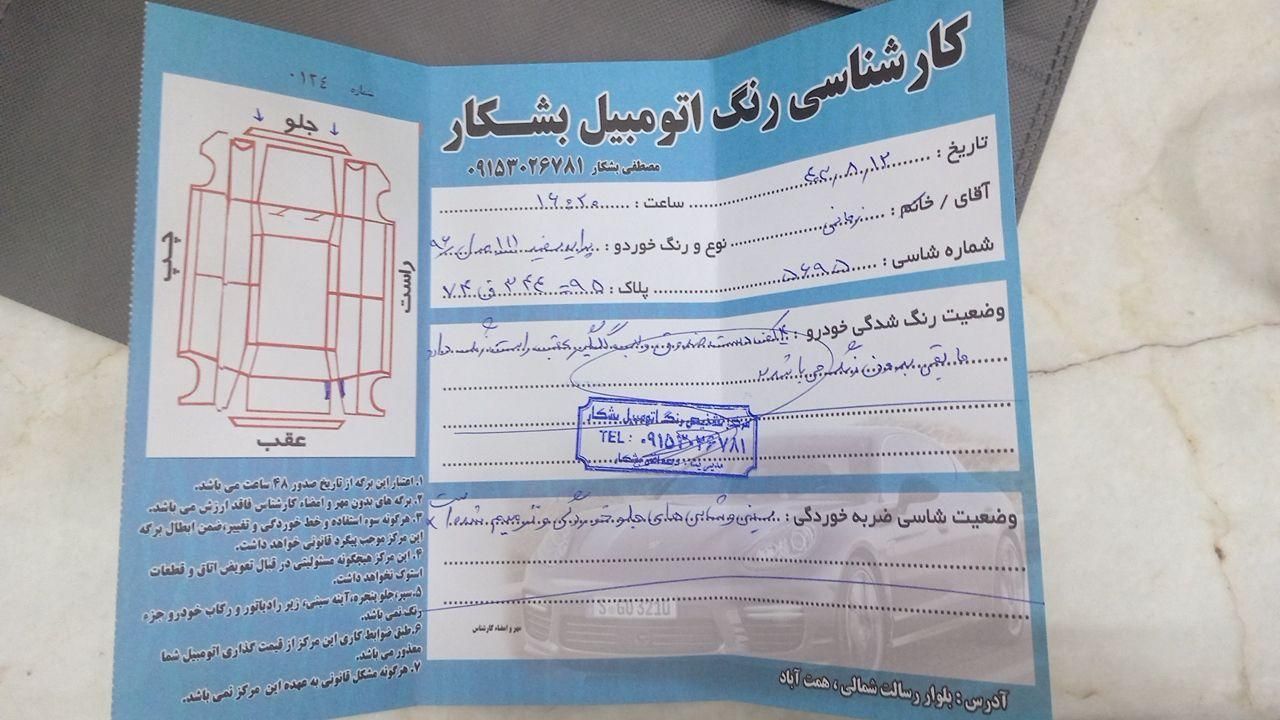 کارشناسی رنگ اتومبیل بشکار
مصطفی بشکار ۰۹۱۵۳۰۲۶۷۸۱
شماره ۰۱۲٤
جلو
چپ
راست
عقب
تاریخ : ۸/۱۲
ساعت : ۱۶:۲۰
آقای / خانم :
نوع و رنگ خوردو : پراید سفید ۱۱۱ مدل ۹۶
شماره شاسی : ۵۶۹۵
پلاک : ۹۵ - ۲۴۴ ق ۷۴
وضعیت رنگ شدگی خودرو : کف دست صندوق و لب گلگیر عقب راست رنگ دارد
مابقی بدون رنگ می باشد
مرکز تشخیص رنگ اتومبیل بشکار
TEL: ۰۹۱۵۳۰۲۶۷۸۱
وضعیت شاسی ضربه خوردگی : سینی و شاسی های جلو خوردگی و ترمیم شده است
S GO 3210
مهر و امضاء کارشناس
آدرس : بلوار رسالت شمالی ، همت آباد
۱. اعتبار این برگه از تاریخ صدور ۴۸ ساعت می باشد.
۲. برگه های بدون مهر و امضاء کارشناس فاقد ارزش می باشد.
۳. هرگونه سوء استفاده و خط خوردگی و تغییر، ضمن ابطال برگه
این مرکز موجب پیگرد قانونی خواهد داشت.
۴. این مرکز هیچگونه مسئولیتی در قبال تعویض اتاق و قطعات
استوک نخواهد داشت.
۵. سپر، جلو پنجره، آینه، سینی، زیر رادیاتور و رکاب خودرو جزء
رنگ نمی باشد.
۶. طبق ضوابط کاری این مرکز از قیمت گذاری اتومبیل شما
معذور می باشد.
۷. هرگونه مشکل قانونی به عهده این مرکز نمی باشد.